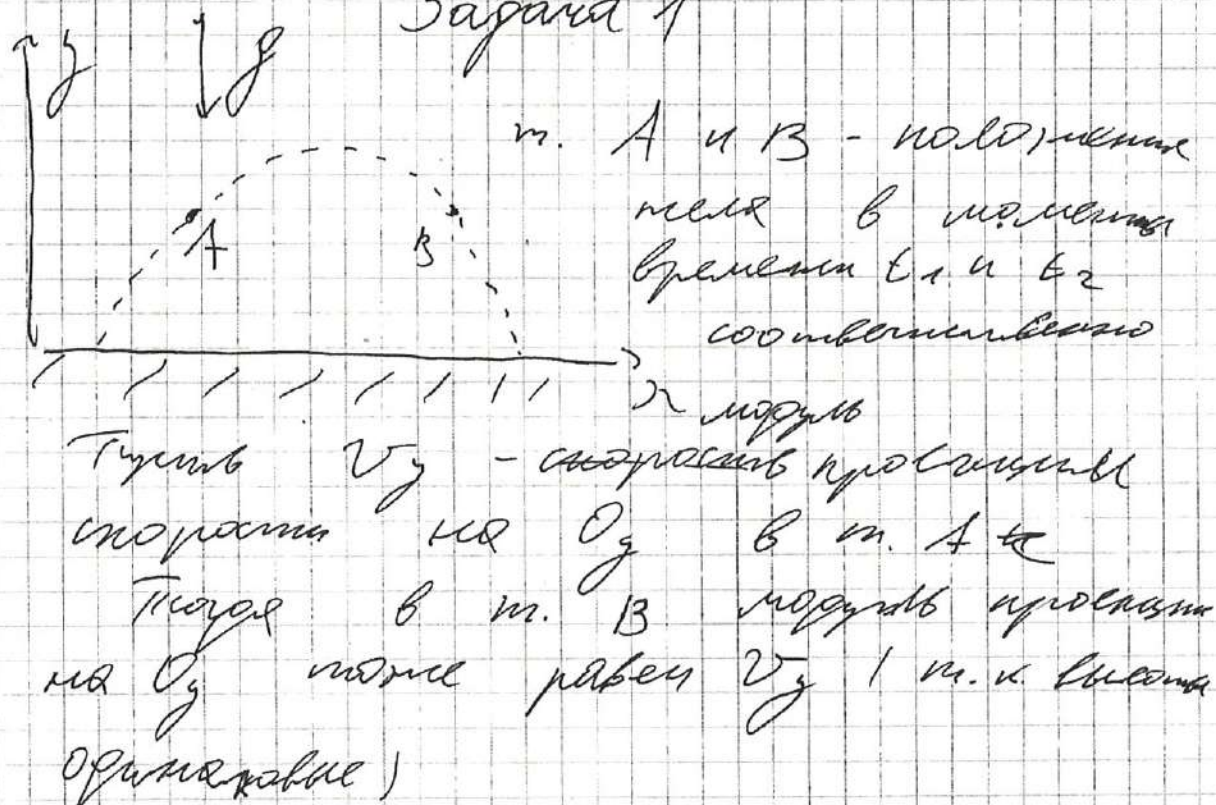 Задача 1
y g
т. A и B - положения
A B тела в моменты
времени t₁ и t₂
соответственно
x
модуль
Пусть Vy - скорость проекции
скорости на Oy в т. A
Тогда в т. B модуль проекции
на Oy тоже равен Vy ( т.к. высоты
одинаковые )